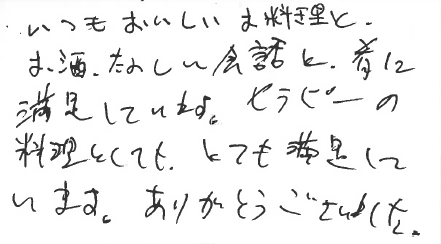 いつもおいしいお料理と、
お酒、たのしい会話と、肴に
満足しています。セラピーの
料理としても、とても満足して
います。ありがとうございました。